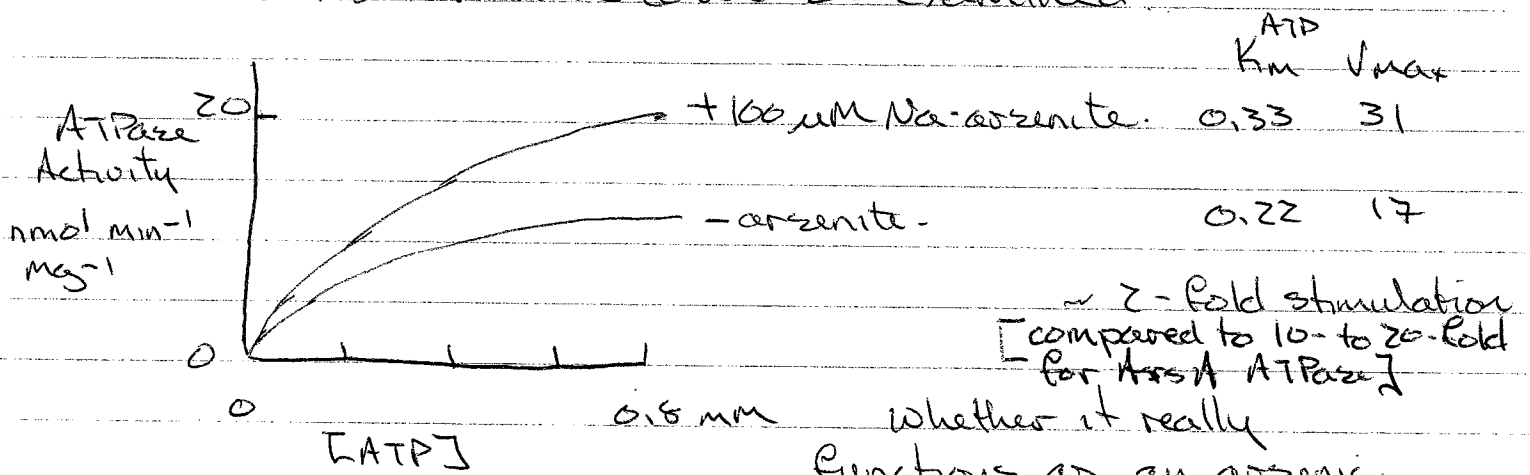 ATP
Km Vmax
20
ATPase
Activity
nmol min-1
mg-1
+100 µM Na-arsenite. 0.33 31
-arsenite. 0.22 17
~ 2-fold stimulation
[compared to 10- to 20-fold
for ArsA ATPase]
0
0 0.8 mM whether it really
[ATP] functions as an arsenic